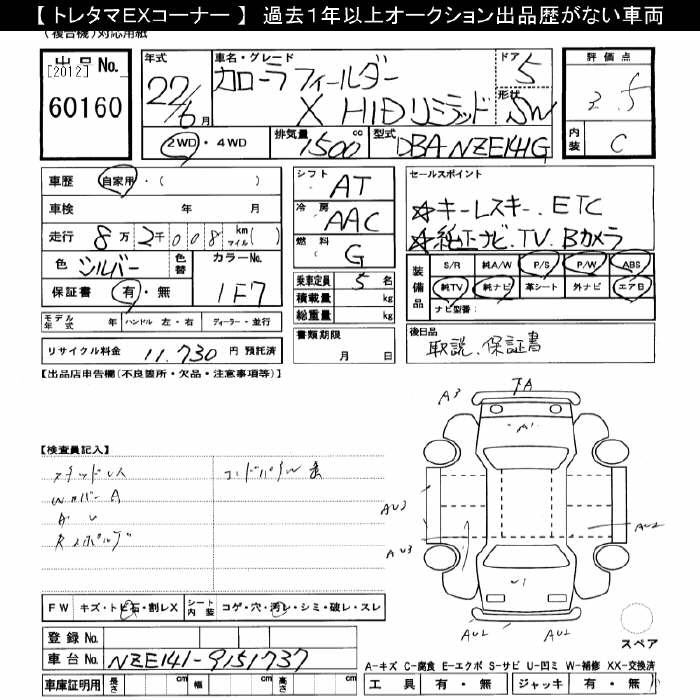 【 トレタマEXコーナー 】 過去1年以上オークション出品歴がない車両
(複合機)対応用紙
出品No.
[2012]
60160
年式
22/6月
車名・グレード
カローラフィールダー
X HIDリミテッド
ドア
5
形状
SW
評価点
3.5
内装
C
2WD・4WD
排気量
1500cc
型式
DBA NZE141G
車歴 自家用・( )
車検 年 月
走行 8万2千008 km マイル( )
色 シルバー
色替
カラーNo.
1F7
保証書 有・無
モデル年式 年 ハンドル 左・右 ディーラー・並行
リサイクル料金 11,730 円 預託済
シフト
AT
冷房
AAC
燃料
G
乗車定員 5名
積載量 kg
総重量 kg
書類期限
月 日
セールスポイント
☆キーレスキー、ETC
☆純正ナビ、TV、Bカメラ
装備品
S/R 純A/W P/S P/W ABS
純TV 純ナビ 革シート 外ナビ エアB
ナビ型番:
後日品
取説、保証書
【出品店申告欄(不良箇所・欠品・注意事項等)】
【検査員記入】
A3
TA
A1
AU2
AU3
AU2
U1
AU2
AU2
FW キズ・トビ石・割レX
シート内装 コゲ・穴・汚レ・シミ・破レ・スレ
登録No.
車台No. NZE141-9151737
車庫証明用 長さ cm 幅 cm 高さ cm
スペア
A-キズ C-腐食 E-エクボ S-サビ U-凹ミ W-補修 XX-交換済
工具 有・無 ジャッキ 有・無